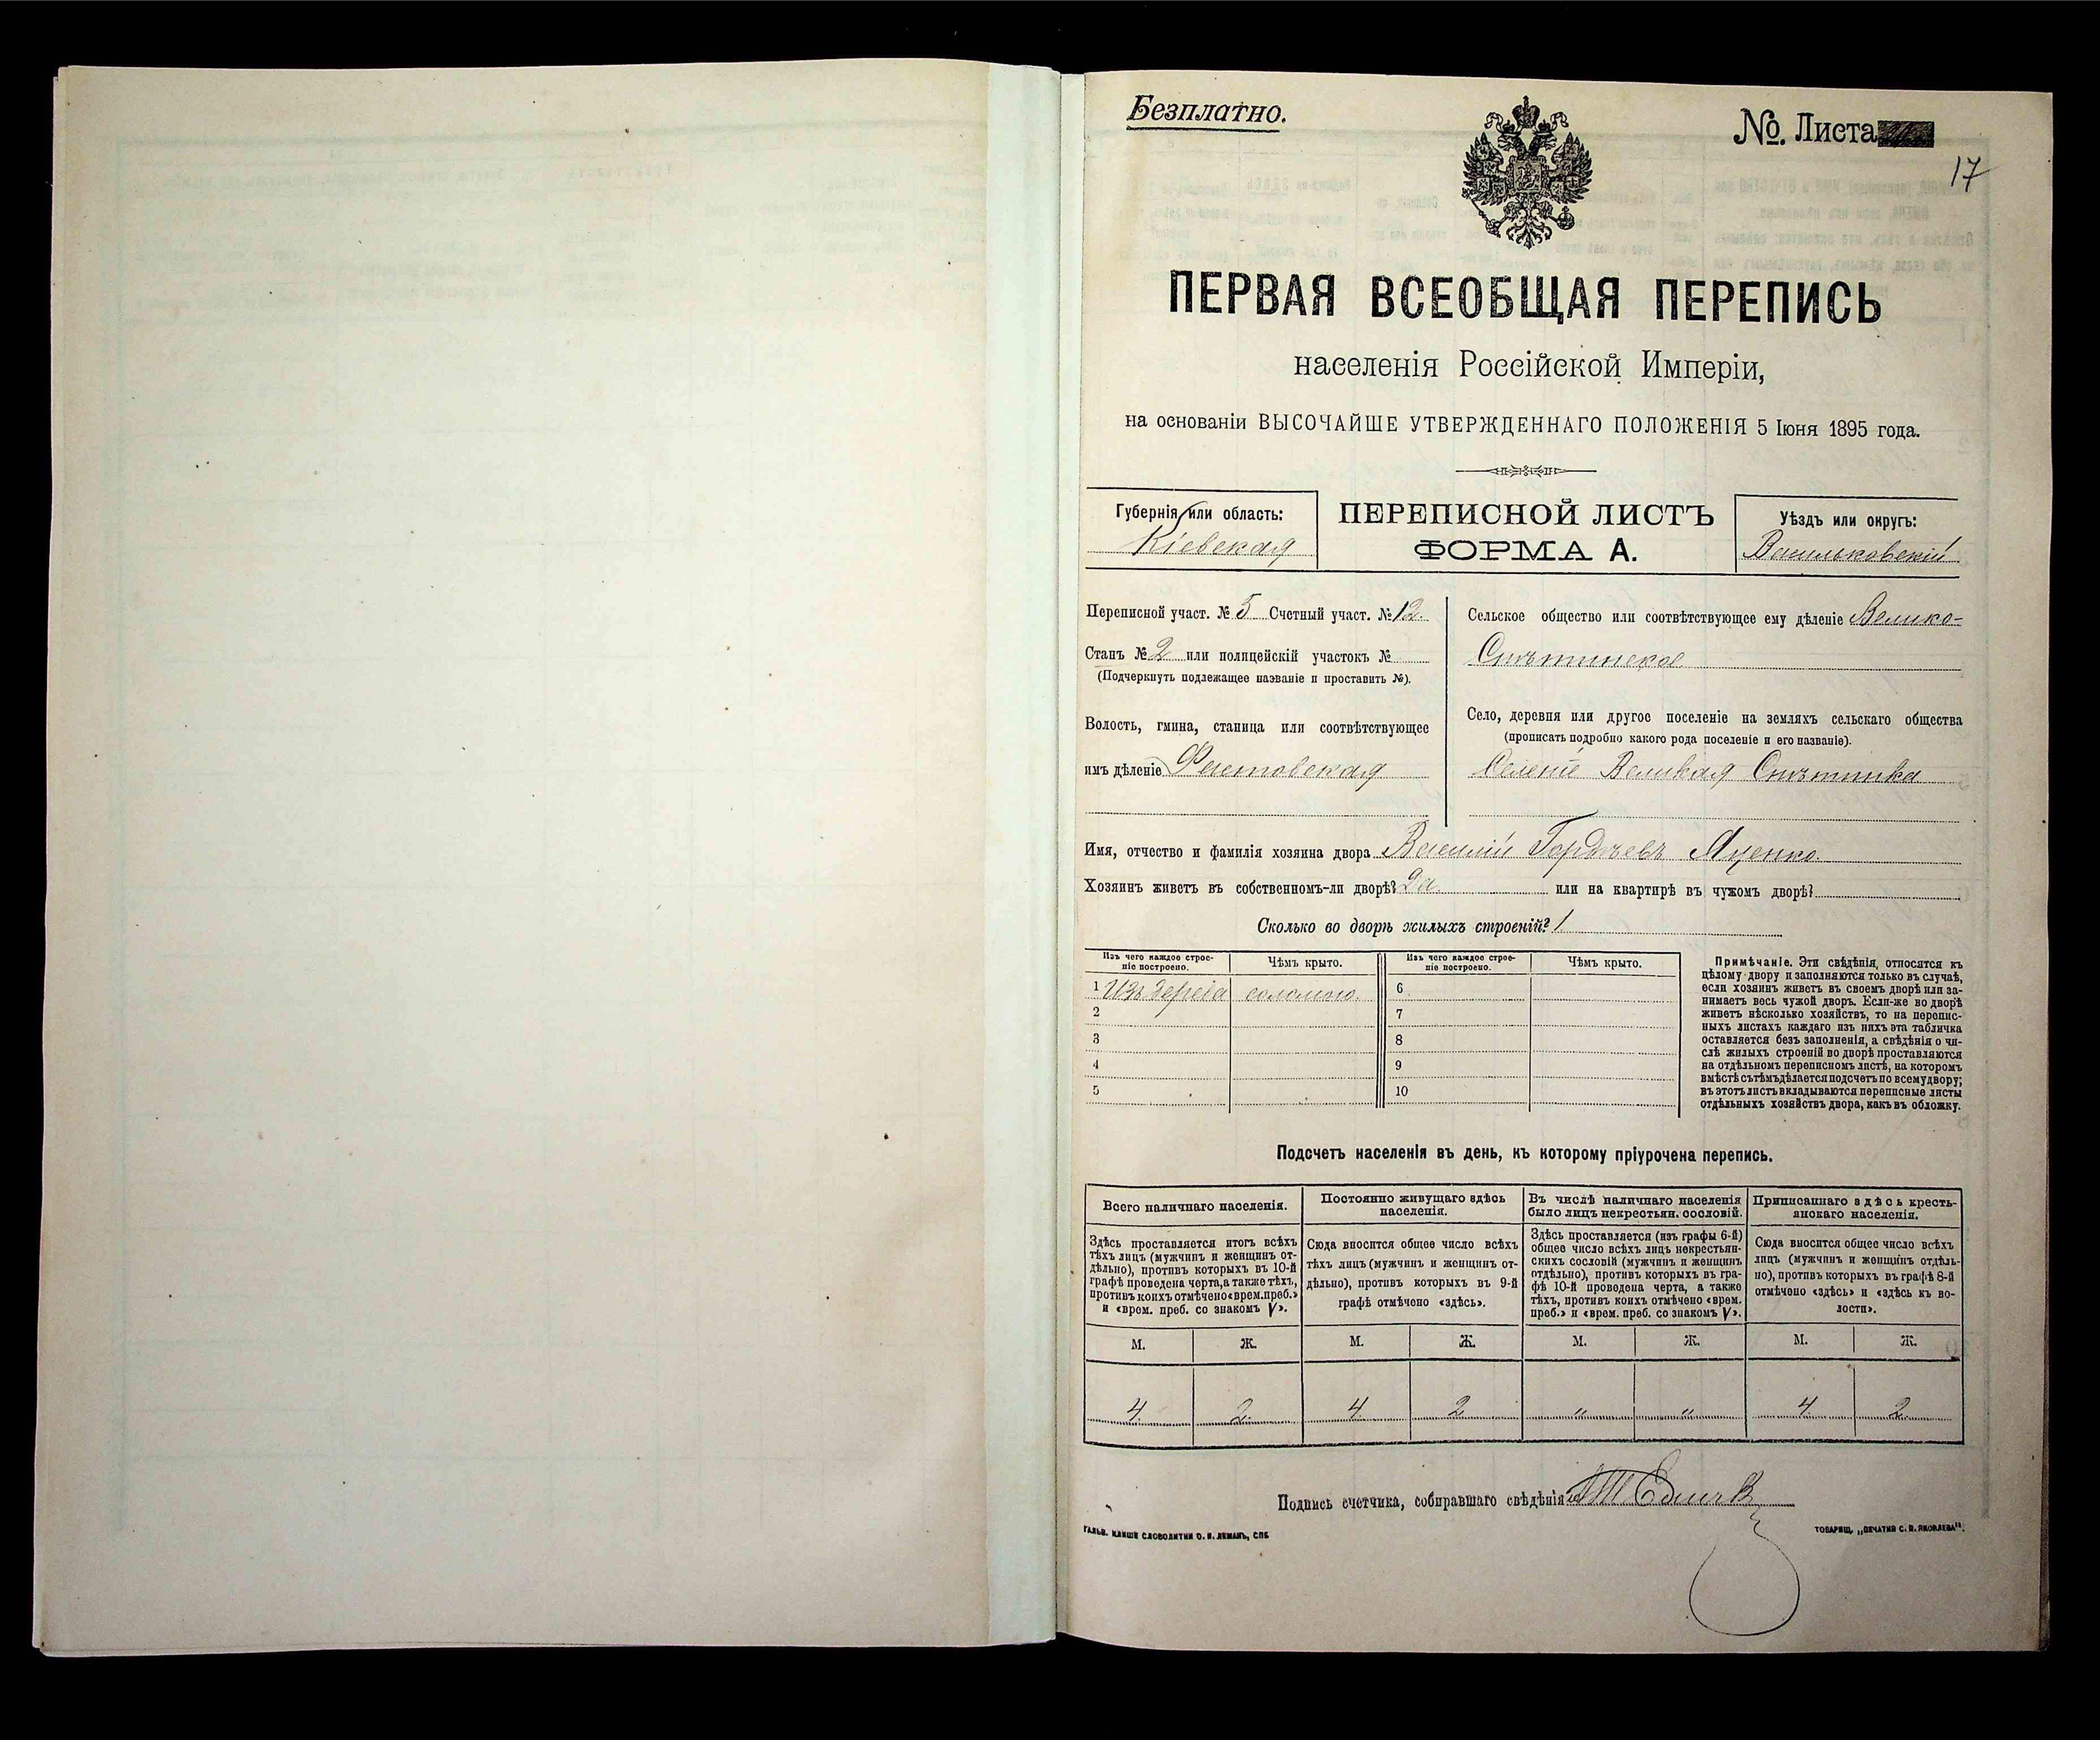 Безплатно.
No. Листа
17
ПЕРВАЯ ВСЕОБЩАЯ ПЕРЕПИСЬ
населенія Россійской Имперіи,
на основаніи ВЫСОЧАЙШЕ УТВЕРЖДЕННАГО ПОЛОЖЕНІЯ 5 Іюня 1895 года.
Губернія или область:
Кіевская
ПЕРЕПИСНОЙ ЛИСТЪ
ФОРМА А.
Уѣздъ или округъ:
Васильковскій
Переписной участ. № 5 Счетный участ. № 12.
Станъ № 2 или полицейскій участокъ №
(Подчеркнуть подлежащее названіе и проставить №).
Волость, гмина, станица или соотвѣтствующее
имъ дѣленіе Фастовская
Сельское общество или соотвѣтствующее ему дѣленіе Велико-
Снѣтинское
Село, деревня или другое поселеніе на земляхъ сельскаго общества
(прописать подробно какого рода поселеніе и его названіе).
Селеніе Великая Снѣтинка
Имя, отчество и фамилія хозяина двора Василій Гордѣевъ Яценко
Хозяинъ живетъ въ собственномъ-ли дворѣ? Да или на квартирѣ въ чужомъ дворѣ?
Сколько во дворѣ жилыхъ строеній? 1
Изъ чего каждое строе-
ніе построено.
Чѣмъ крыто.
Изъ чего каждое строе-
ніе построено.
Чѣмъ крыто.
1 Изъ дерева соломою. 6
2 7
3 8
4 9
5 10
Примѣчаніе. Эти свѣдѣнія, относятся къ
цѣлому двору и заполняются только въ случаѣ,
если хозяинъ живетъ въ своемъ дворѣ или за-
нимаетъ весь чужой дворъ. Если-же во дворѣ
живетъ нѣсколько хозяйствъ, то на перепис-
ныхъ листахъ каждаго изъ нихъ эта табличка
оставляется безъ заполненія, а свѣдѣнія о чи-
слѣ жилыхъ строеній во дворѣ проставляются
на отдѣльномъ переписномъ листѣ, на которомъ
вмѣстѣ съ тѣмъ дѣлается подсчетъ по всему двору;
въ этотъ листъ вкладываются переписные листы
отдѣльныхъ хозяйствъ двора, какъ въ обложку.
Подсчетъ населенія въ день, къ которому пріурочена перепись.
Всего наличнаго населенія.
Постоянно живущаго здѣсь
населенія.
Въ числѣ наличнаго населенія
было лицъ некрестьян. сословій.
Приписаннаго здѣсь кресть-
янскаго населенія.
Здѣсь проставляется итогъ всѣхъ
тѣхъ лицъ (мужчинъ и женщинъ от-
дѣльно), противъ которыхъ въ 10-й
графѣ проведена черта, а также тѣхъ,
противъ коихъ отмѣчено «врем. преб.»
и «врем. преб. со знакомъ V».
Сюда вносится общее число всѣхъ
тѣхъ лицъ (мужчинъ и женщинъ от-
дѣльно), противъ которыхъ въ 9-й
графѣ отмѣчено «здѣсь».
Здѣсь проставляется (изъ графы 6-й)
общее число всѣхъ лицъ некрестьян-
скихъ сословій (мужчинъ и женщинъ
отдѣльно), противъ которыхъ въ гра-
фѣ 10-й проведена черта, а также
тѣхъ, противъ коихъ отмѣчено «врем.
преб.» и «врем. преб. со знакомъ V».
Сюда вносится общее число всѣхъ
лицъ (мужчинъ и женщинъ отдѣль-
но), противъ которыхъ въ графѣ 8-й
отмѣчено «здѣсь» и «здѣсь къ во-
лости».
М. Ж. М. Ж. М. Ж. М. Ж.
4 2 4 2 " " 4 2
Подпись счетчика, собиравшаго свѣдѣнія
ГАЛЬВ. КЛИШЕ СЛОВОЛИТНИ О. И. ЛЕМАНЪ, СПБ.
ТОВАРИЩ. „ПЕЧАТНЯ С. П. ЯКОВЛЕВА".